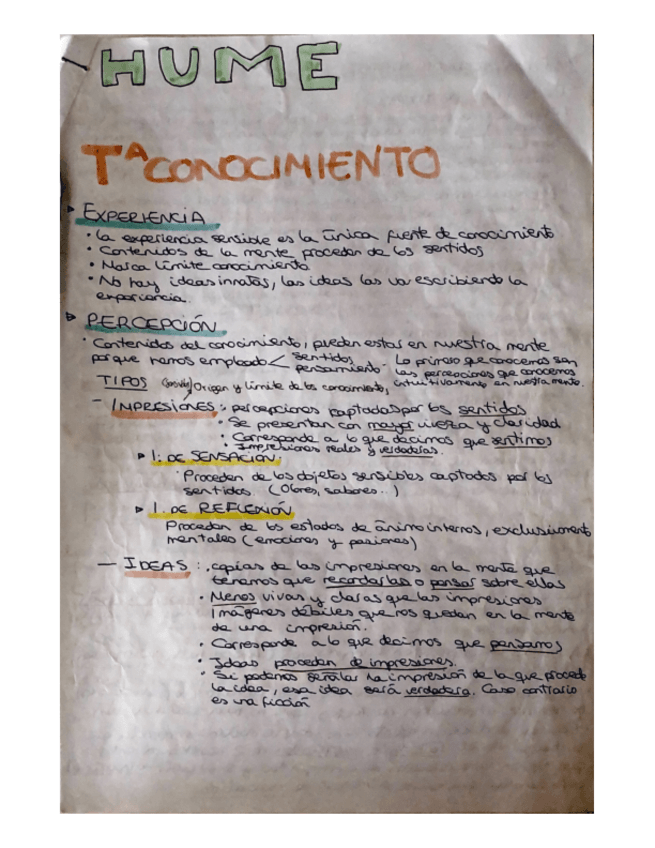 HUME
Tª CONOCIMIENTO
EXPERIENCIA
• La experiencia sensible es la única fuente de conocimiento
• Contenidos de la mente proceden de los sentidos
• Marca límite conocimiento
• No hay ideas innatas, las ideas las va escribiendo la
experiencia.
PERCEPCIÓN
• Contenidos del conocimiento, pueden estar en nuestra mente
porque hemos empleado < sentidos
pensamiento - Lo primero que conocemos son
las percepciones que conocemos
intuitivamente en nuestra mente.
TIPOS Origen y límite de los conocimiento,
- IMPRESIONES: percepciones captadas por los sentidos
• Se presentan con mayor fuerza y claridad
• Corresponde a lo que decimos que sentimos
• Impresiones reales y verdaderas.
I. DE SENSACIÓN:
Proceden de los objetos sensibles captados por los
sentidos (Olores, sabores..)
I. DE REFLEXIÓN
Proceden de los estados de ánimo internos, exclusivament
mentales (emociones y pasiones)
- IDEAS: copias de las impresiones en la mente que
tenemos que recordarlas o pensar sobre ellas
• Menos vivas y claras que las impresiones
Imágenes débiles que nos quedan en la mente
de una impresión.
• Corresponde a lo que decimos que pensamos
• Ideas proceden de impresiones.
• Si podemos señalar la impresión de la que procede
la idea, esa idea será verdadera. Caso contrario
es una ficción